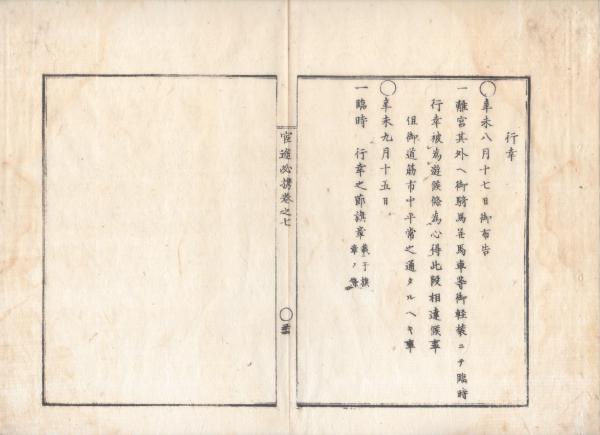 行幸
○辛未八月十七日御布告
一離宮其外ヘ御騎馬并馬車等御軽装ニテ臨時
行幸被為遊候條為心得此段相達候事
但御道筋市中平常之通タルヘキ事
○辛未九月十五日
一臨時 行幸之節旗章載于旗章ノ部
宦途必携巻之七